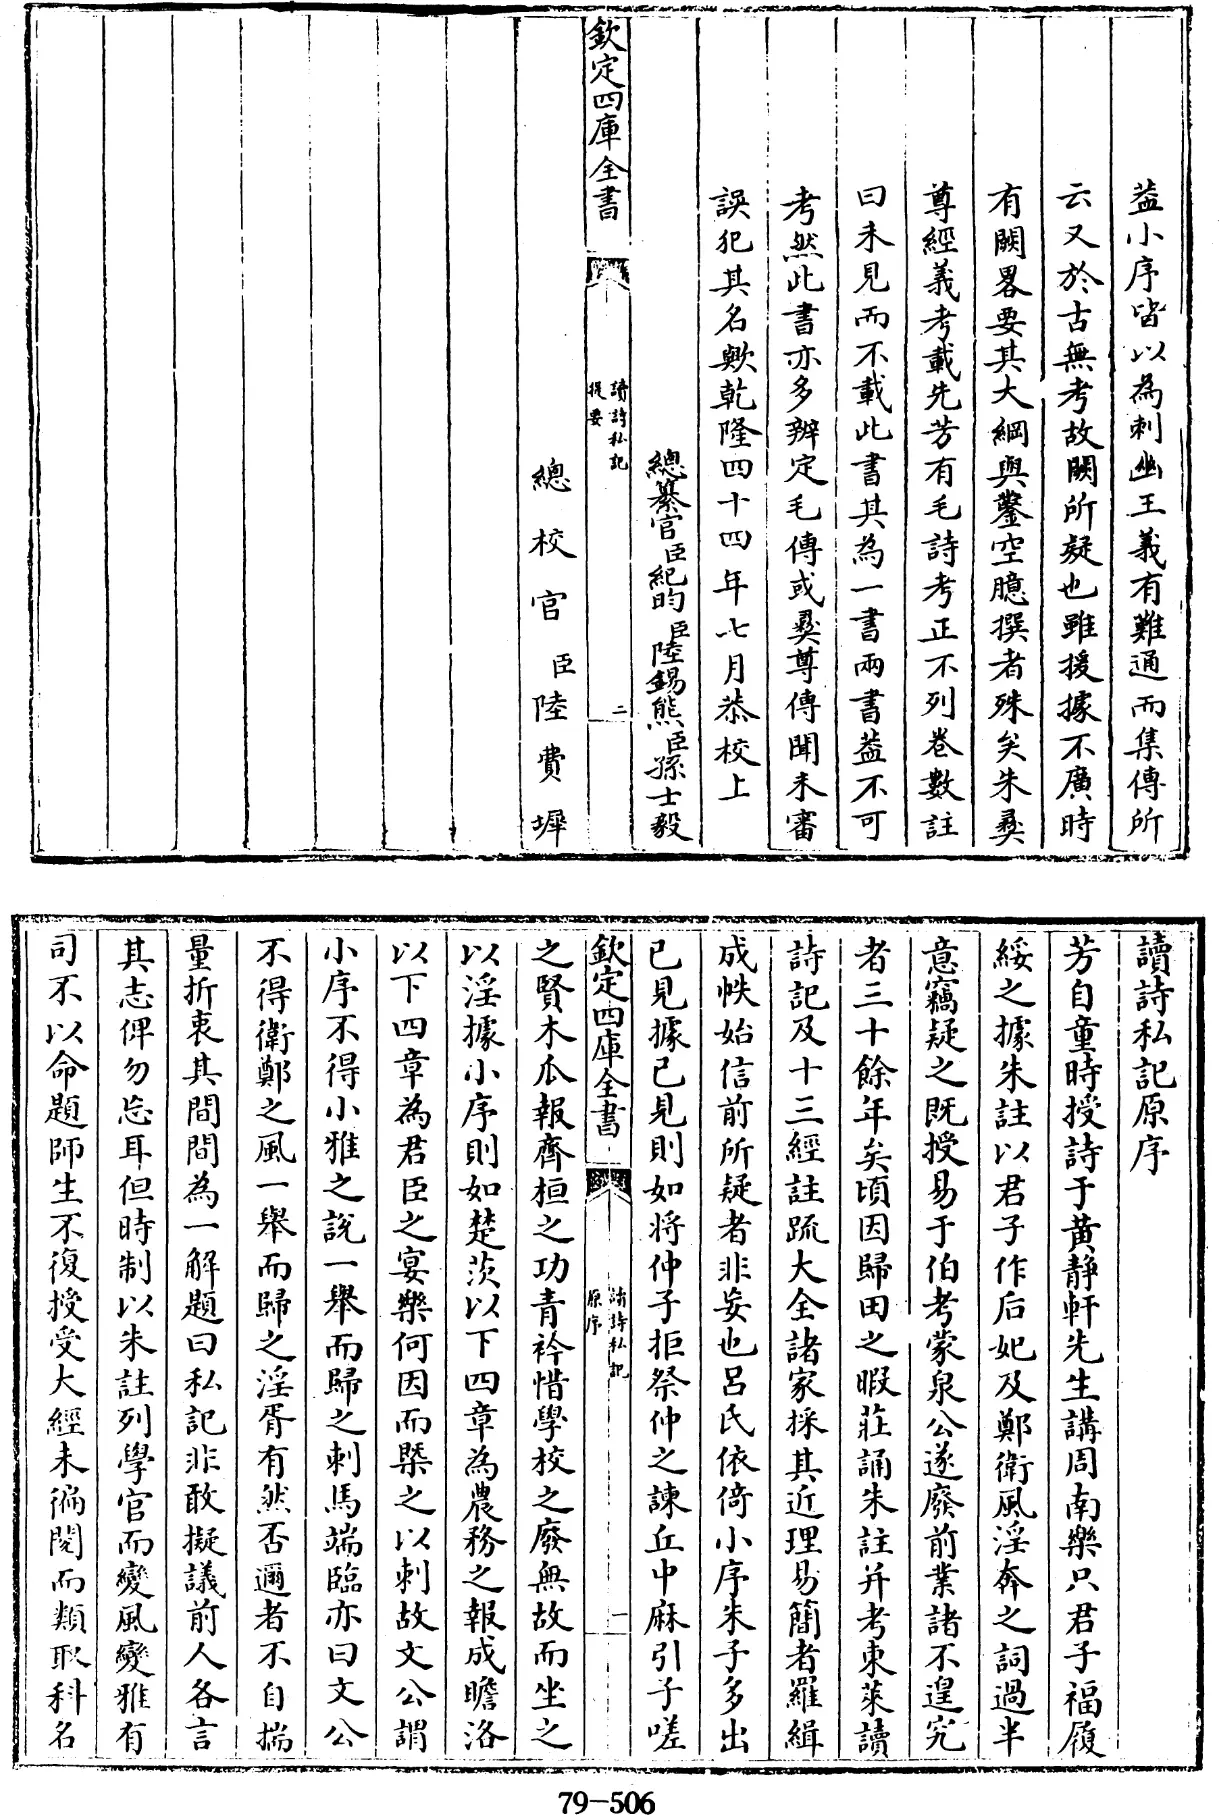 葢小序皆以為刺幽王義有難通而集傳所
云又於古無考故闕所疑也雖援據不廣時
有闕畧要其大綱與鑿空臆撰者殊矣朱彝
尊經義考載先芳有毛詩考正不列卷數註
曰未見而不載此書其為一書兩書葢不可
考然此書亦多辨定毛傳或彛尊傳聞未審
誤犯其名歟乾隆四十四年七月恭校上
總纂官臣紀昀臣陸錫熊臣孫士毅
欽定四庫全書
讀詩私記
提要
二
總校官臣陸費墀
讀詩私記原序
芳自童時授詩于黄靜軒先生講周南樂只君子福履
綏之據朱註以君子作后妃及鄭衛風淫奔之詞過半
意竊疑之既授易于伯考蒙泉公遂廢前業諸不遑究
者三十餘年矣頃因歸田之暇莊誦朱註并考東萊讀
詩記及十三經註疏大全諸家採其近理易簡者羅緝
成帙始信前所疑者非妄也呂氏依倚小序朱子多出
已見據已見則如将仲子拒祭仲之諫丘中麻引子嗟
欽定四庫全書
讀詩私記
原序
一
之賢木瓜報齊桓之功青衿惜學校之廢無故而坐之
以淫據小序則如楚茨以下四章為農務之報成瞻洛
以下四章為君臣之宴樂何因而槩之以刺故文公謂
小序不得小雅之說一舉而歸之刺馬端臨亦曰文公
不得衛鄭之風一舉而歸之淫胥有然否邇者不自揣
量折衷其間間為一解題曰私記非敢擬議前人各言
其志俾勿忘耳但時制以朱註列學官而變風變雅有
司不以命題師生不復授受大經未徧閱而類取科名
79-506